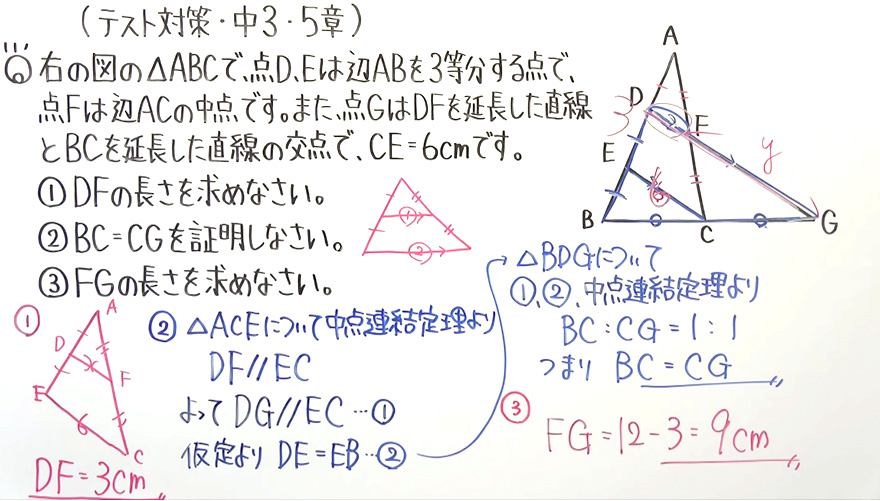 (テスト対策・中3・5章)
右の図の△ABCで、点D、Eは辺ABを3等分する点で、
点Fは辺ACの中点です。また、点GはDFを延長した直線
とBCを延長した直線の交点で、CE=6cmです。
①DFの長さを求めなさい。
②BC=CGを証明しなさい。
③FGの長さを求めなさい。
① ②
A
D
F
3
y
E
B
C
G
①
A
D
x
F
E
6
C
DF=3cm
② △ACEについて中点連結定理より
DF//EC
よって DG//EC…①
仮定より DE=EB…②
△BDGについて
①,②、中点連結定理より
BC:CG=1:1
つまり BC=CG
③
FG=12-3=9cm